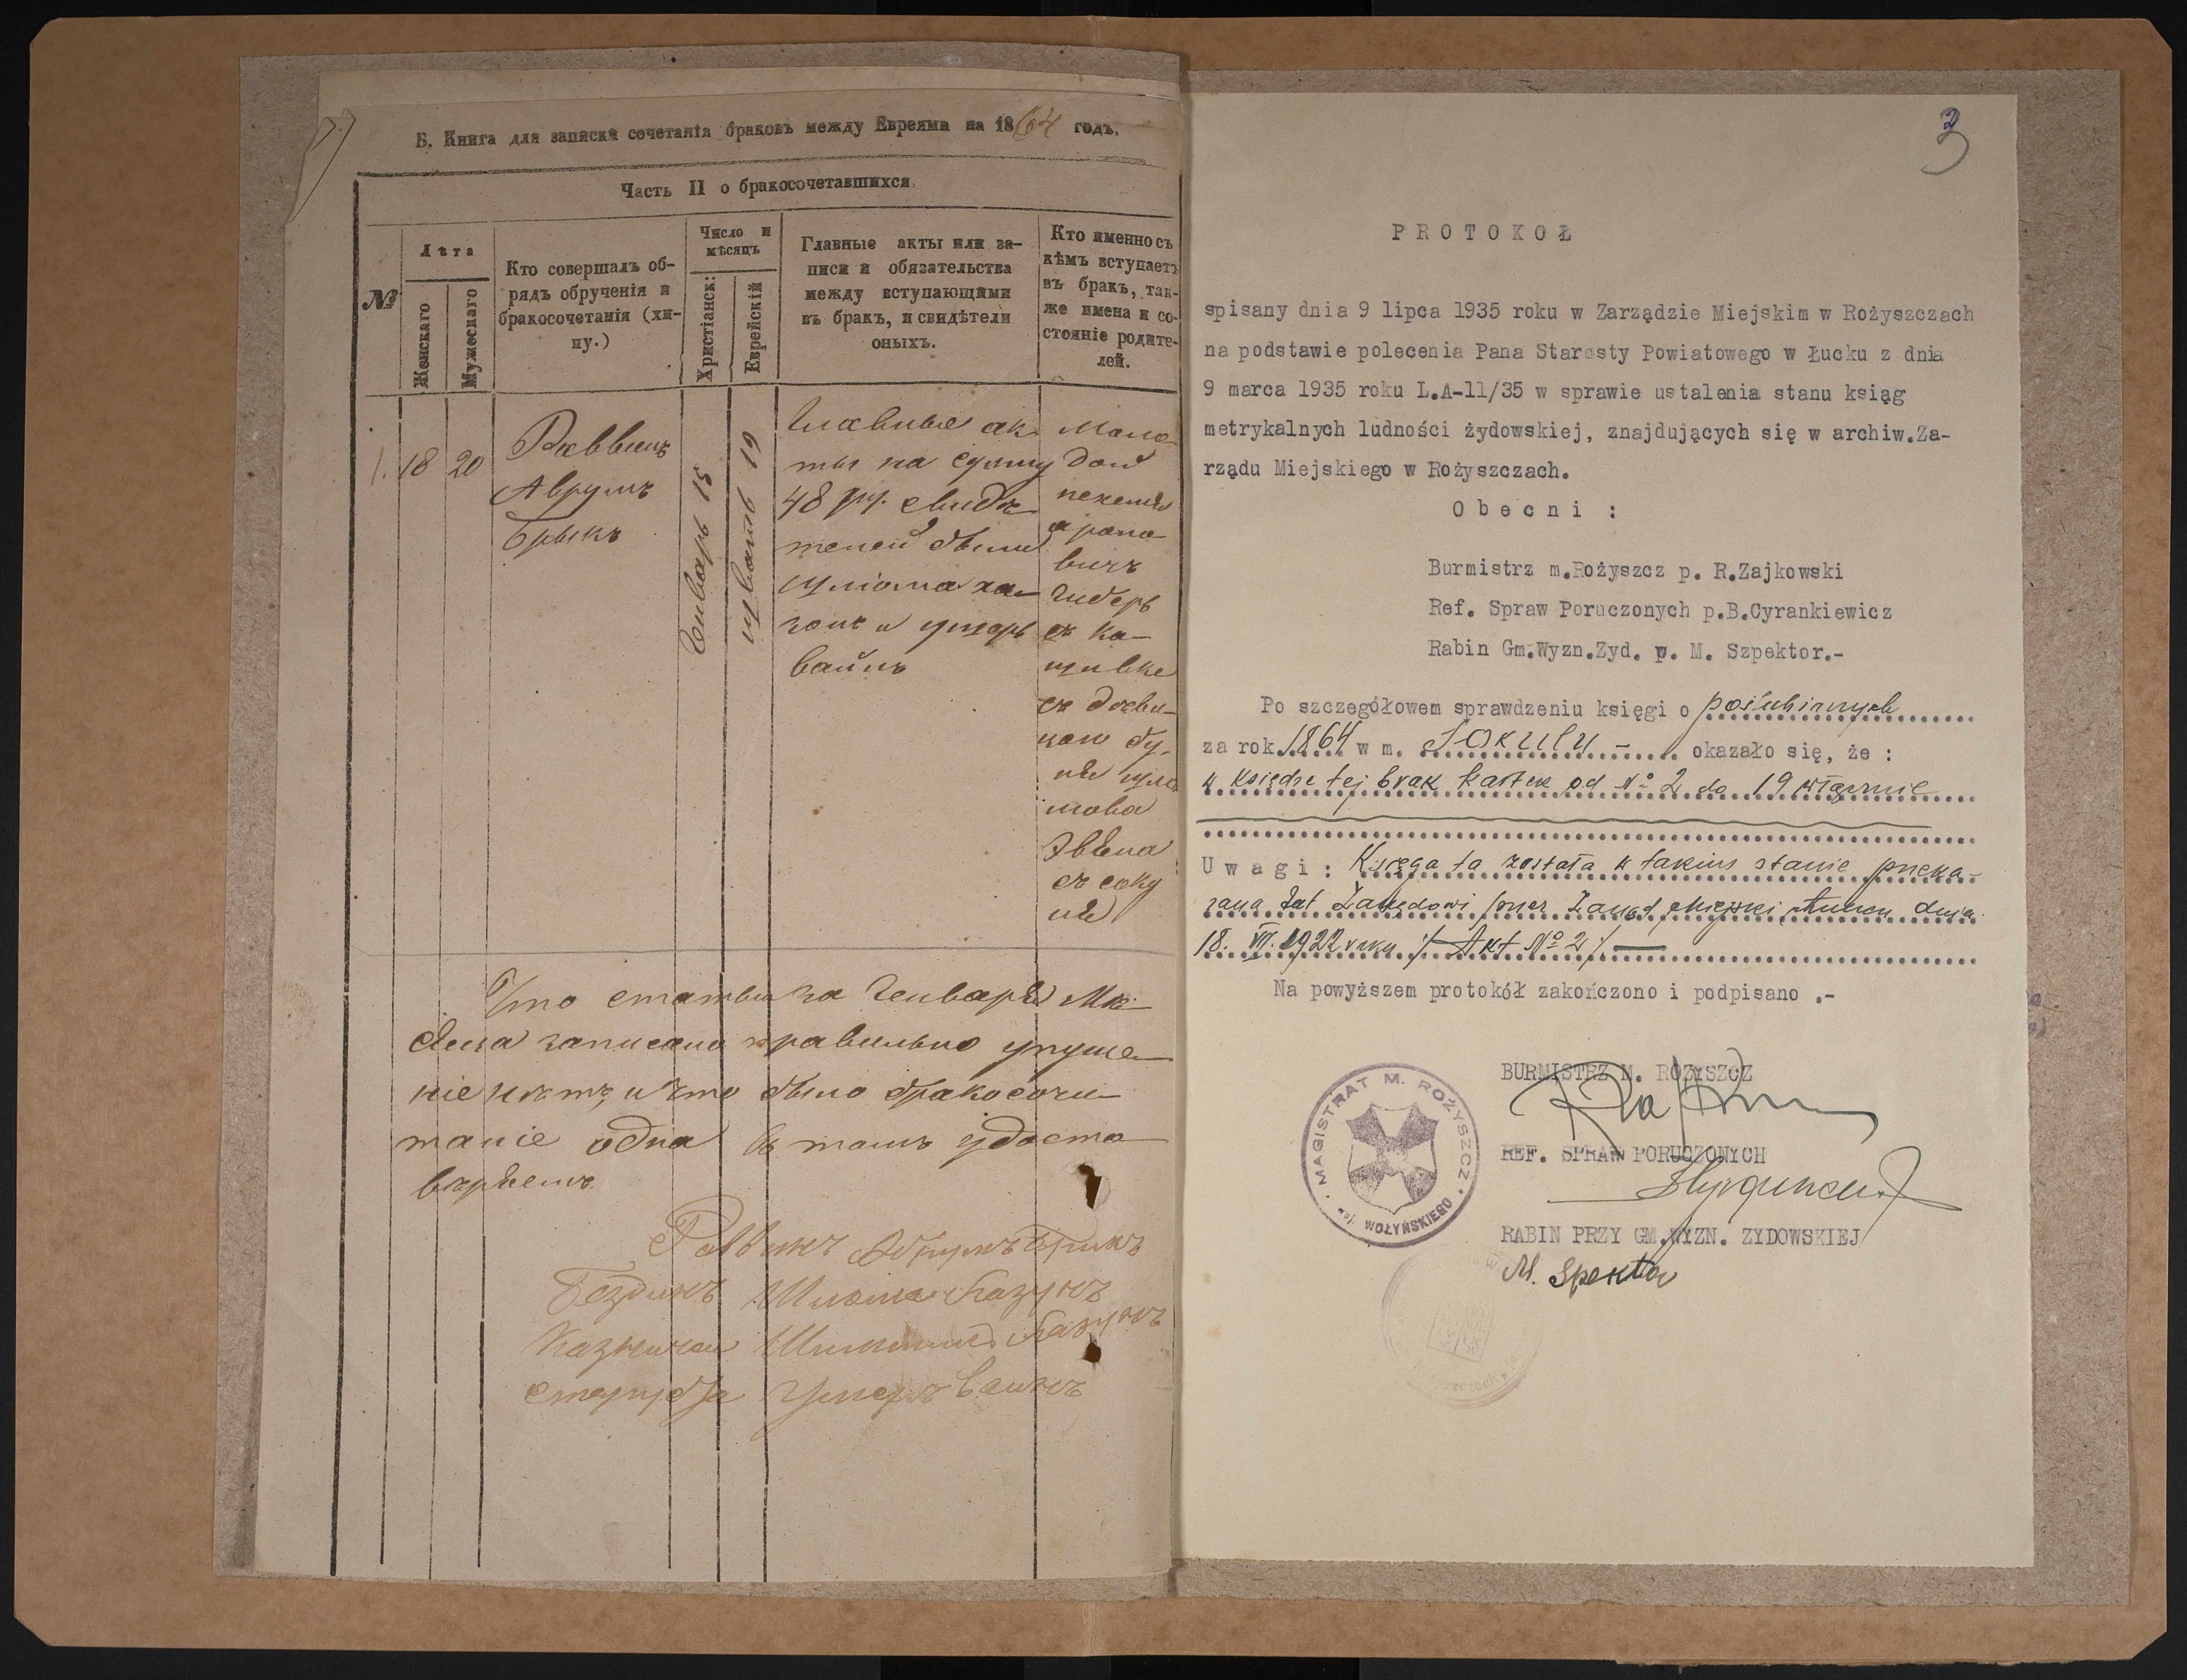 Б. Книга для записки сочетанія браковъ между Евреями на 1864 годъ.
Часть II о бракосочетавшихся.
№
Лѣта
Женскаго
Мужескаго
Кто совершалъ об-
рядъ обрученія и
бракосочетанія (хи-
пу.)
Число и
мѣсяцъ
Христіанск:
Еврейскій
Главные акты или за-
писи и обязательства
между вступающими
въ бракъ, и свидѣтели
оныхъ.
Кто именно съ
кѣмъ вступаетъ
въ бракъ, так-
же имена и со-
стояніе родите-
лей.
1. 18 20
Раввинъ
Аврумъ
Брикъ
Генварь 15
шватъ 19
Главные ак
ты на сумму
48 ру. свидѣ
телей были
шліома ха
зонъ и ушеръ
вайнъ
Моло
дой
гиберъ
съ
съ девк
шлі
мова
съ соку
Что статьи за Генварь Мѣ
сяца записано правильно упуще
ніе нѣтъ, и что было бракосоче
таніе одна въ томъ удосто
вѣряемъ
Раввинъ Аврумъ Брикъ
Шліома Хазунъ
Казначей
староста Ушеръ Вайнъ
3
PROTOKOŁ
spisany dnia 9 lipca 1935 roku w Zarządzie Miejskim w Rożyszczach
na podstawie polecenia Pana Starosty Powiatowego w Łucku z dnia
9 marca 1935 roku L.A-11/35 w sprawie ustalenia stanu ksiąg
metrykalnych ludności żydowskiej, znajdujących się w archiw.Za-
rządu Miejskiego w Rożyszczach.
Obecni :
Burmistrz m.Rożyszcz p. R.Zajkowski
Ref. Spraw Poruczonych p.B.Cyrankiewicz
Rabin Gm.Wyzn.Zyd. p. M. Szpektor.-
Po szczegółowem sprawdzeniu księgi o poślubionych
za rok 1864 w m. Sokulu - okazało się, że :
w księdze tej brak kartek od № 2 do 19 włącznie
Uwagi : Księga ta została w takim stanie przeka-
zana tut Zarządowi przez Zarząd Miejski dnia
18. VII. 1922 roku /Akt № 2/. —
Na powyższem protokół zakończono i podpisano .-
BURMISTRZ M. ROŻYSZCZ
REF. SPRAW PORUCZONYCH
RABIN PRZY GM.WYZN. ZYDOWSKIEJ
M. Spektor
MAGISTRAT M. ROŻYSZCZ
woj. WOŁYŃSKIEGO